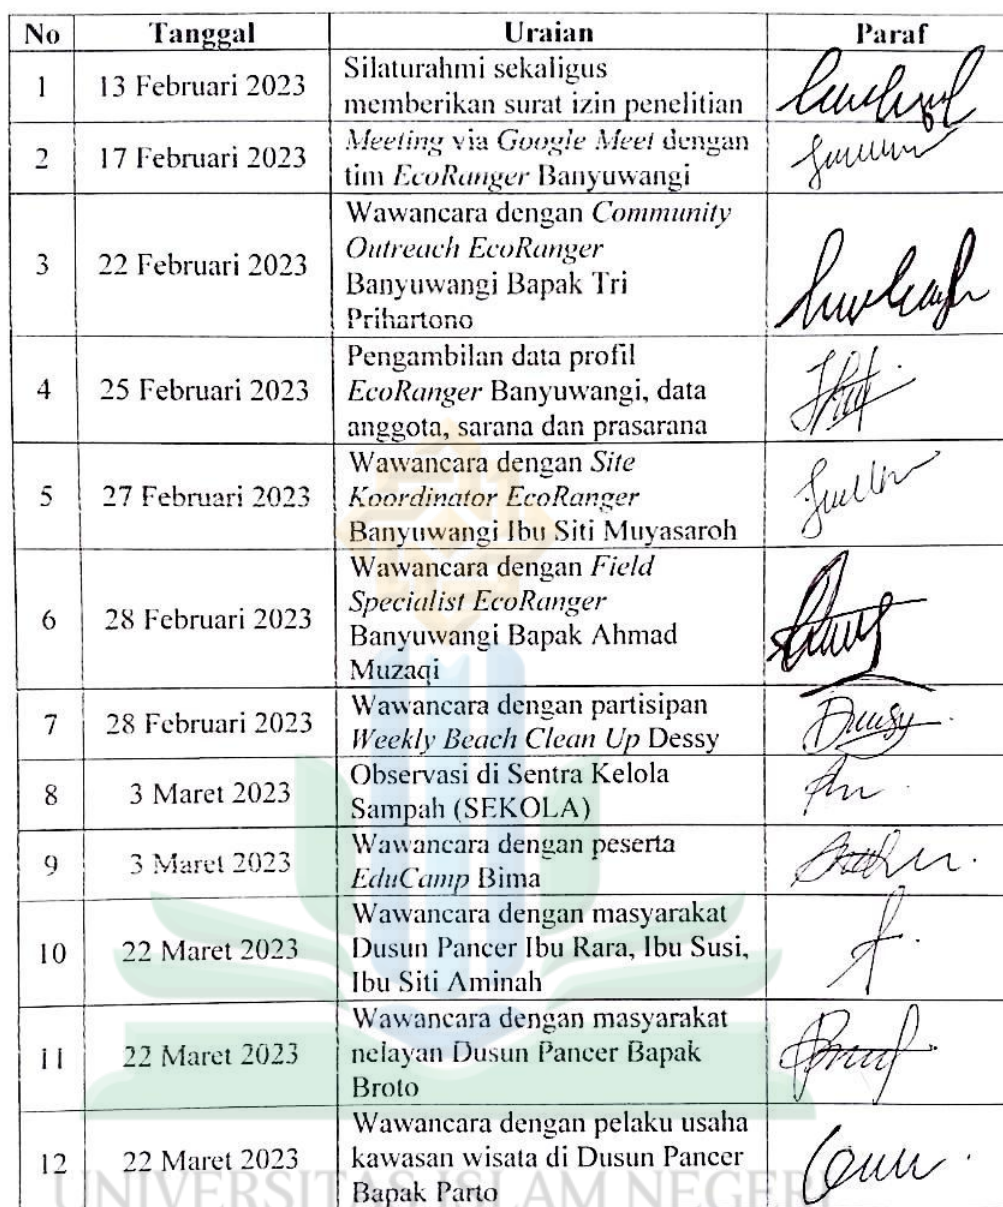 No Tanggal Uraian Paraf
1 13 Februari 2023 Silaturahmi sekaligus
memberikan surat izin penelitian
2 17 Februari 2023 Meeting via Google Meet dengan
tim EcoRanger Banyuwangi
3 22 Februari 2023 Wawancara dengan Community
Outreach EcoRanger
Banyuwangi Bapak Tri
Prihartono
4 25 Februari 2023 Pengambilan data profil
EcoRanger Banyuwangi, data
anggota, sarana dan prasarana
5 27 Februari 2023 Wawancara dengan Site
Koordinator EcoRanger
Banyuwangi Ibu Siti Muyasaroh
6 28 Februari 2023 Wawancara dengan Field
Specialist EcoRanger
Banyuwangi Bapak Ahmad
Muzaqi
7 28 Februari 2023 Wawancara dengan partisipan
Weekly Beach Clean Up Dessy
8 3 Maret 2023 Observasi di Sentra Kelola
Sampah (SEKOLA)
9 3 Maret 2023 Wawancara dengan peserta
EduCamp Bima
10 22 Maret 2023 Wawancara dengan masyarakat
Dusun Pancer Ibu Rara, Ibu Susi,
Ibu Siti Aminah
11 22 Maret 2023 Wawancara dengan masyarakat
nelayan Dusun Pancer Bapak
Broto
12 22 Maret 2023 Wawancara dengan pelaku usaha
kawasan wisata di Dusun Pancer
Bapak Parto
UNIVERSITAS ISLAM NEGERI